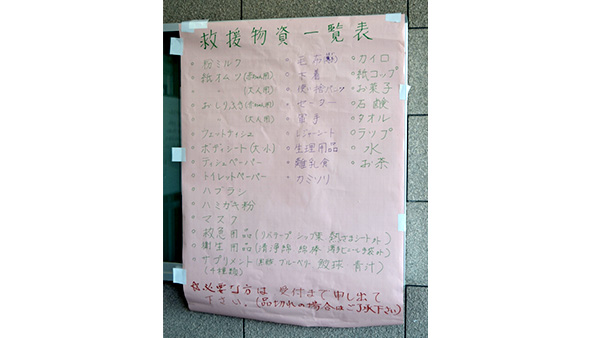 救援物資一覧表
粉ミルク
紙オムツ(赤ちゃん用)
(大人用)
おしりふき(赤ちゃん用)
(大人用)
ウェットティシュ
ボディシート(大小)
ティシュペーパー
トイレットペーパー
ハブラシ
ハミガキ粉
マスク
救急用品(リバテープ シップ薬 熱さまシート外)
衛生用品(清浄綿 綿棒 手袋外)
サプリメント ブルーベリー 青汁)
毛布
下着
使い捨てパンツ
セーター
軍手
レジャーシート
生理用品
離乳食
カミソリ
カイロ
紙コップ
お菓子
石鹸
タオル
ラップ
水
お茶
必要な方は受付まで申し出て
下さい。(品切れの場合はご了承下さい)